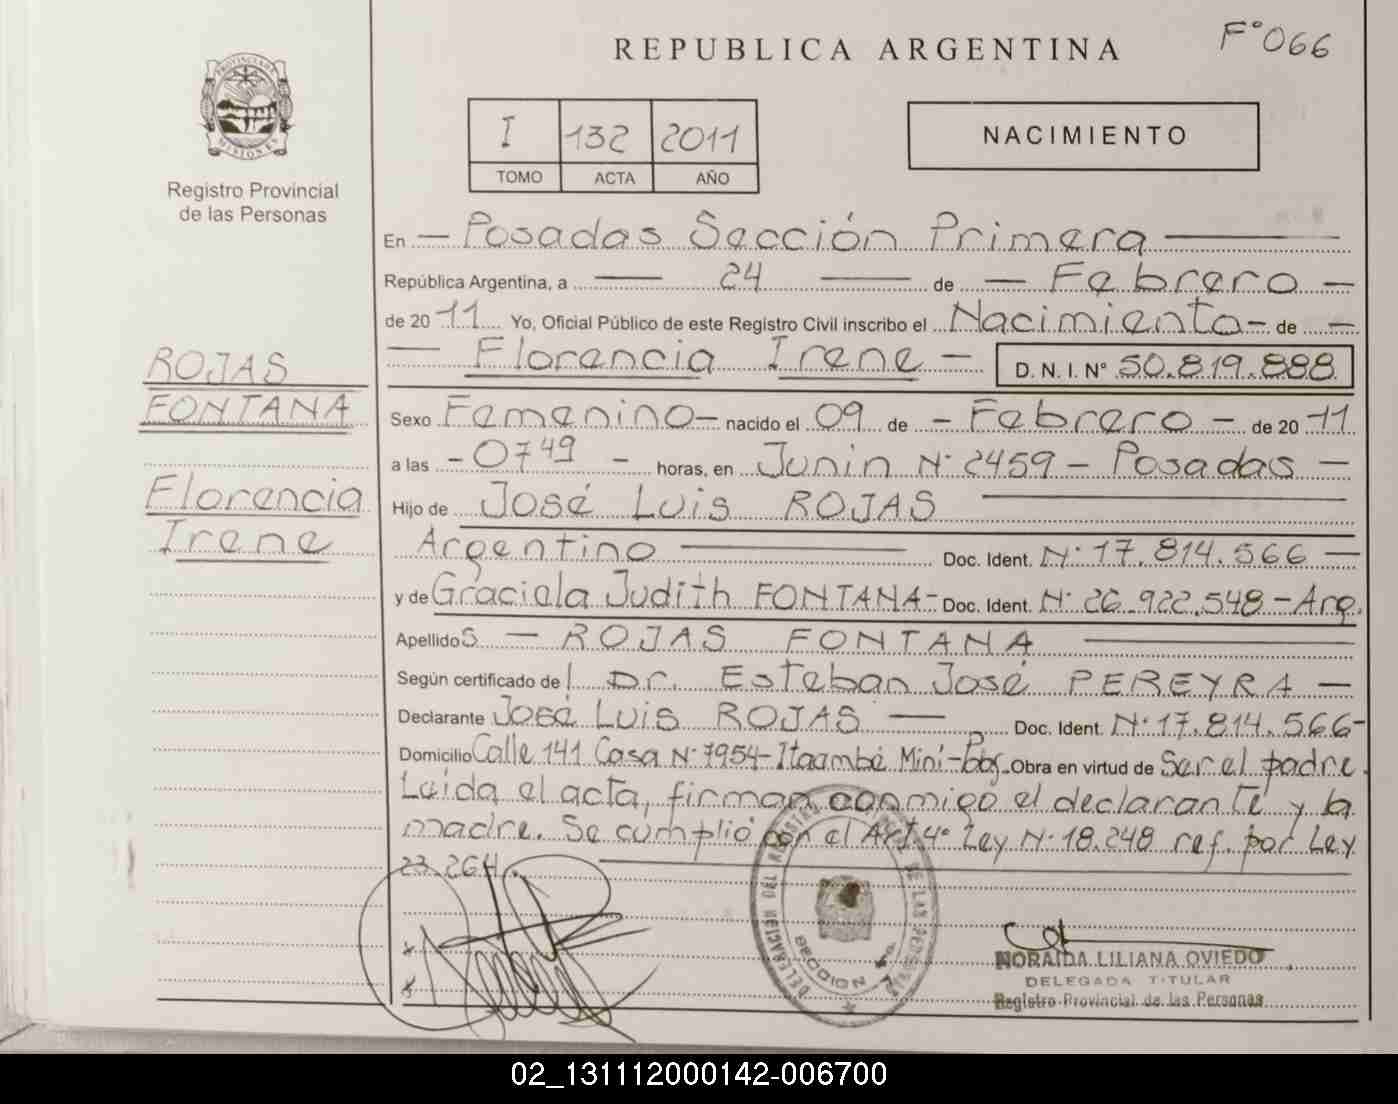 REPUBLICA ARGENTINA
F° 066
PROVINCIA DE
MISIONES
Registro Provincial
de las Personas
I 132 2011
TOMO ACTA AÑO
NACIMIENTO
En — Posadas Sección Primera —
República Argentina, a — 24 — de — Febrero —
de 20 11 Yo, Oficial Público de este Registro Civil inscribo el Nacimiento - de —
— Florencia Irene — D. N. I. N° 50.819.888
ROJAS
FONTANA
Florencia
Irene
Sexo Femenino - nacido el 09 de - Febrero - de 20 11
a las - 0749 - horas, en Junin N° 2459 - Posadas —
Hijo de José Luis ROJAS —
Argentino — Doc. Ident. N° 17.814.566 —
y de Graciela Judith FONTANA - Doc. Ident. N° 26.922.548 - Arg.
Apellidos — ROJAS FONTANA —
Según certificado del Dr. Esteban José PEREYRA —
Declarante José Luis ROJAS — Doc. Ident. N° 17.814.566 -
Domicilio Calle 141 Casa N° 7954 - Itaambé Miní - Pdas. Obra en virtud de Ser el padre.
Leída el acta, firman conmigo el declarante y la
madre. Se cumplió con el Art 4° Ley N° 18.248 ref. por Ley
23.264.
DELEGACION DEL REGISTRO PROVINCIAL DE LAS PERSONAS
SECCION 1
NORAIDA LILIANA OVIEDO
DELEGADA TITULAR
Registro Provincial de las Personas
02_131112000142-006700